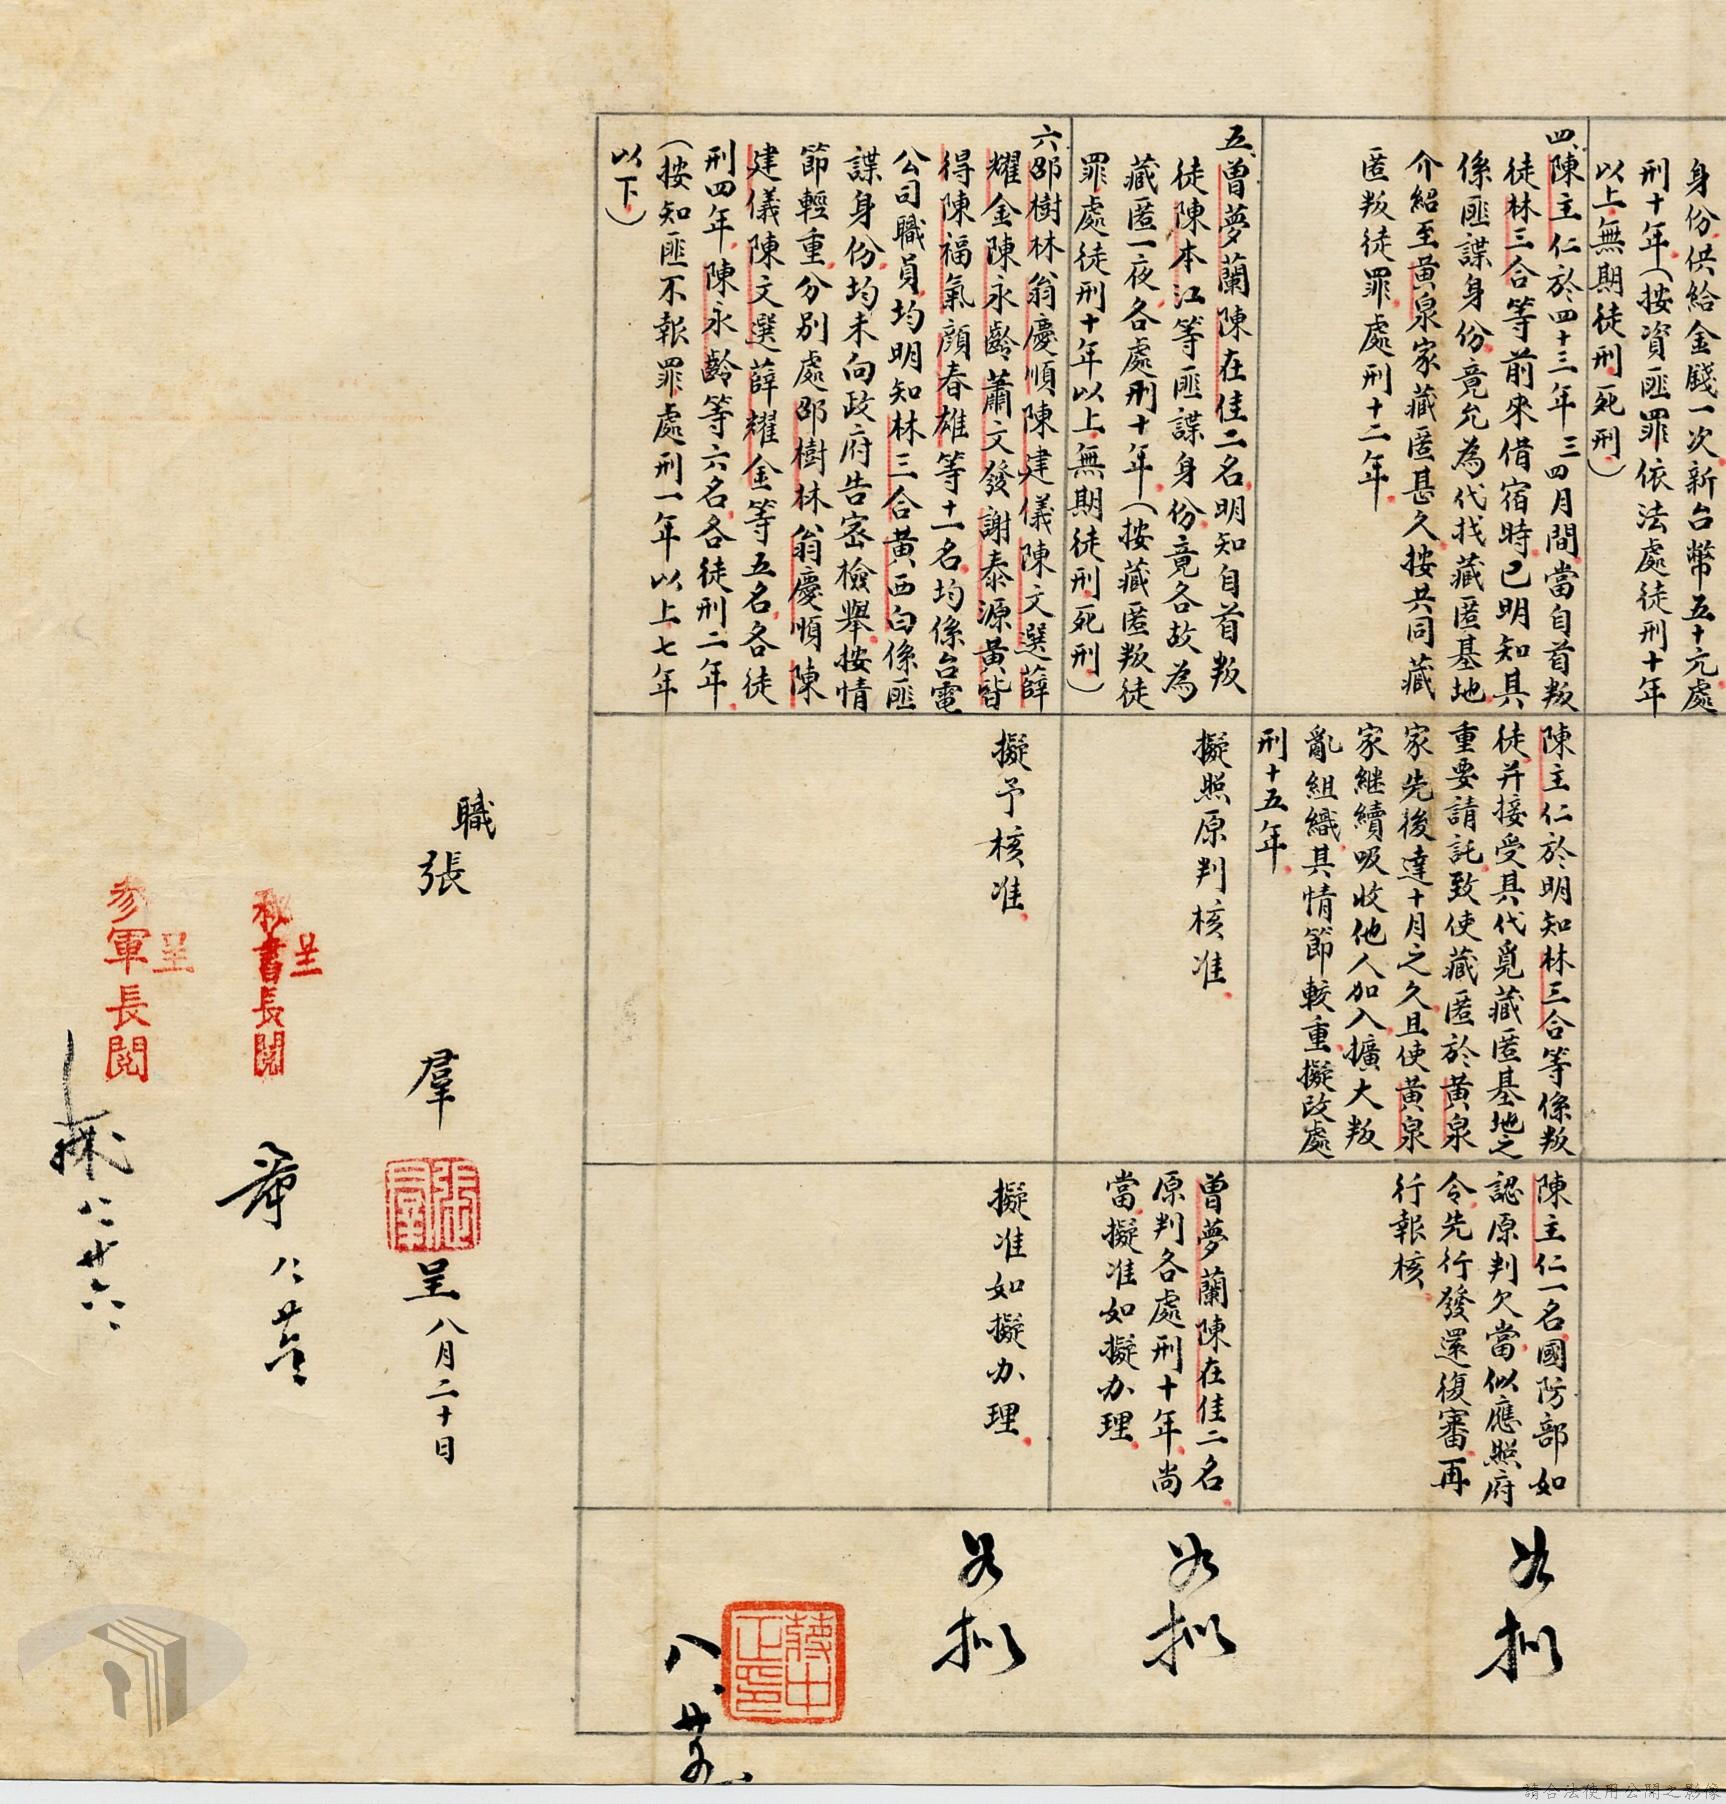 身份供給金錢一次新台幣五十元處
刑十年(按資匪罪依法處徒刑十年
以上無期徒刑死刑)
四、陳主仁於四十三年三四月間當自首叛
徒林三合等前來借宿時已明知其
係匪諜身份竟允為代找藏匿基地
介紹至黃泉家藏匿甚久按共同藏
匿叛徒罪處刑十二年
陳主仁於明知林三合等係叛
徒并接受其代覓藏匿基地之
重要請託致使藏匿於黃泉
家先後達十月之久且使黃泉
家繼續吸收他人加入擴大叛
亂組織其情節較重擬改處
刑十五年
陳主仁一名國防部如
認原判欠當似應照府
令先行發還復審再
行報核
如擬
五、曾夢蘭陳在佳二名明知自首叛
徒陳本江等匪諜身份竟各故為
藏匿一夜各處刑十年(按藏匿叛徒
罪處徒刑十年以上無期徒刑死刑)
擬照原判核准
曾夢蘭陳在佳二名
原判各處刑十年尚
當擬准如擬办理
如擬
六、邵樹林翁慶順陳建儀陳文選薛
耀金陳永齡蕭文發謝泰源黃皆
得陳福氣顏春雄等十一名均係台電
公司職員均明知林三合黃西白係匪
諜身份均未向政府告密檢舉按情
節輕重分別處邵樹林翁慶順陳
建儀陳文選薛耀金等五名各徒
刑四年陳永齡等六名各徒刑二年
(按知匪不報罪處刑一年以上七年
以下)
擬予核准
擬准如擬办理
如擬
蔣中正印
職
張羣
張羣
呈八月二十日
呈
秘書長閱
呈
參軍長閱
八、廿六
請合法使用公開之影像